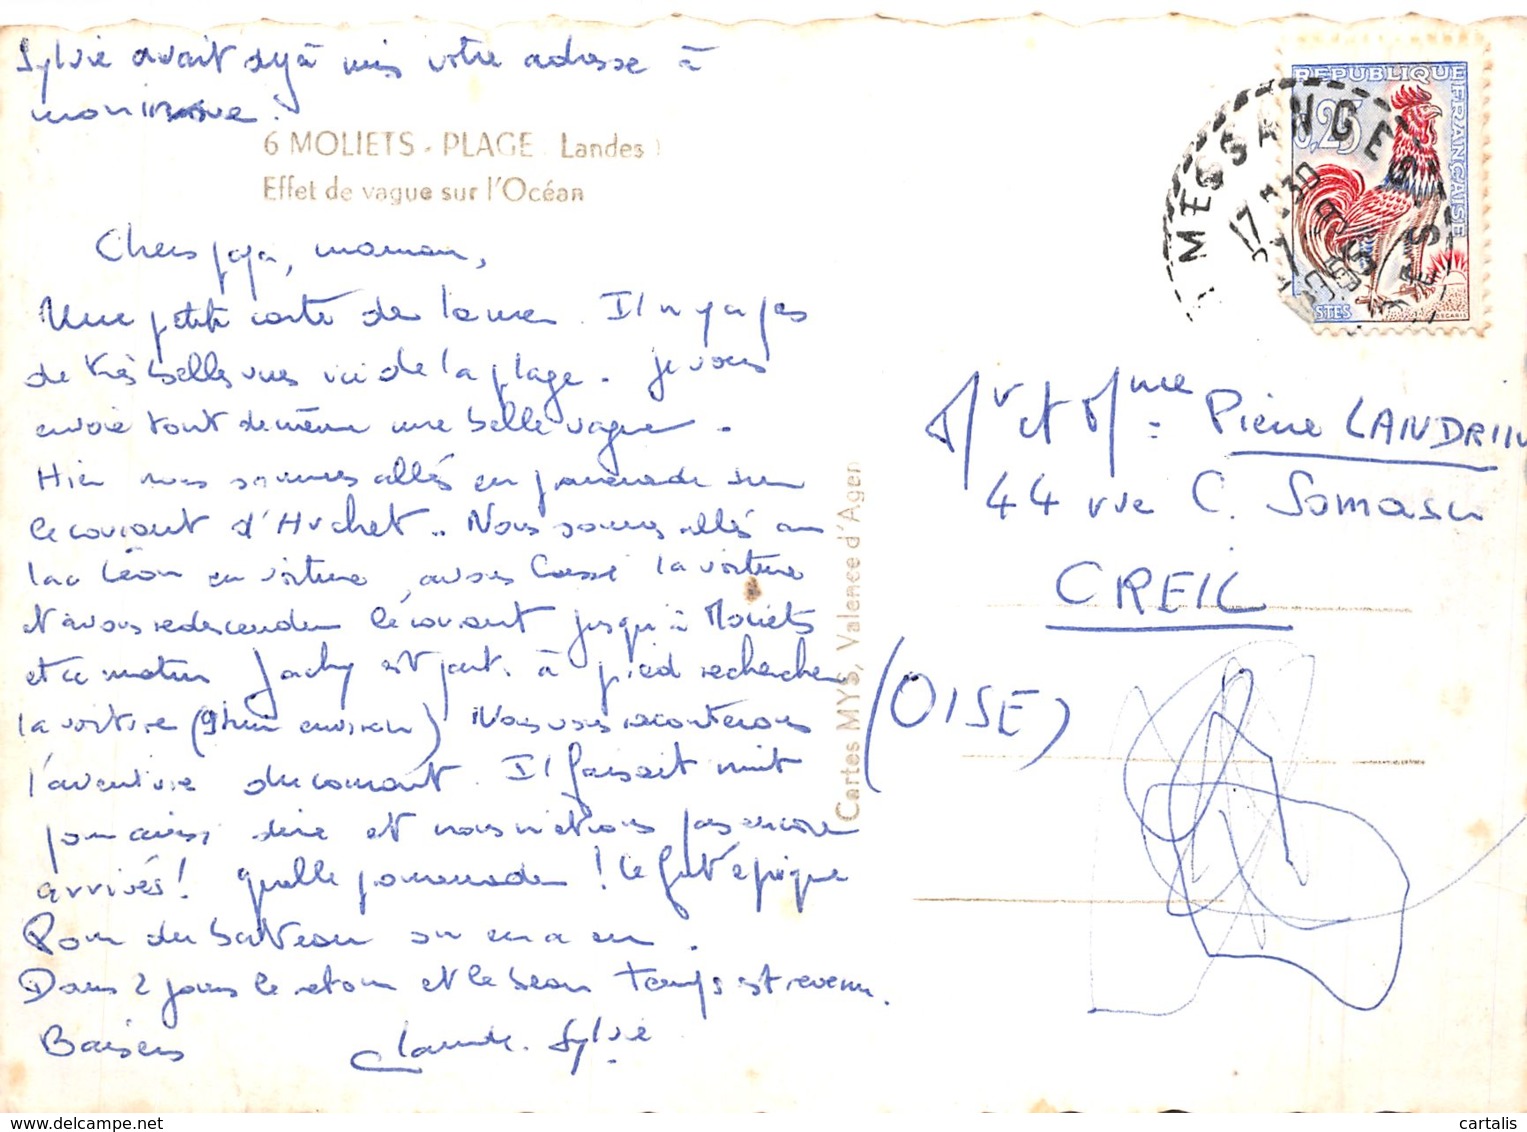 Sylvie avait déjà mis votre adresse à
6 MOLIETS - PLAGE Landes)
Effet de vague sur l'Océan
Chers papa, maman,
Une petite carte de la mer. Il n'y a pas
de très belles vues ici de la plage. je vous
envoie tout de même une belle vague.
Hier nous sommes allés en promenade sur
le courant d'Huchet.. Nous sommes allés au
lac Léon en voiture, avons laissé la voiture
et avons redescendu le courant jusqu'à Moliets
et ce matin Jacky est parti à pied rechercher
la voiture (9 km environ) Nous vous raconterons
l'aventure du courant. Il faisait nuit
pour ainsi dire et nous n'étions pas encore
arrivés! quelle promenade! ce fut épique
Pour du bateau on en a eu.
Dans 2 jours le retour et le beau temps est revenu.
Baisers Claude. Sylvie
Cartes MYS, Valence d'Agen
MESSANGES
17 30
REPUBLIQUE FRANÇAISE
0,25
POSTES
Mr et Mme Pierre LANDRIN
44 rue C. Somasco
CREIL
(OISE)
www.delcampe.net
cartalis